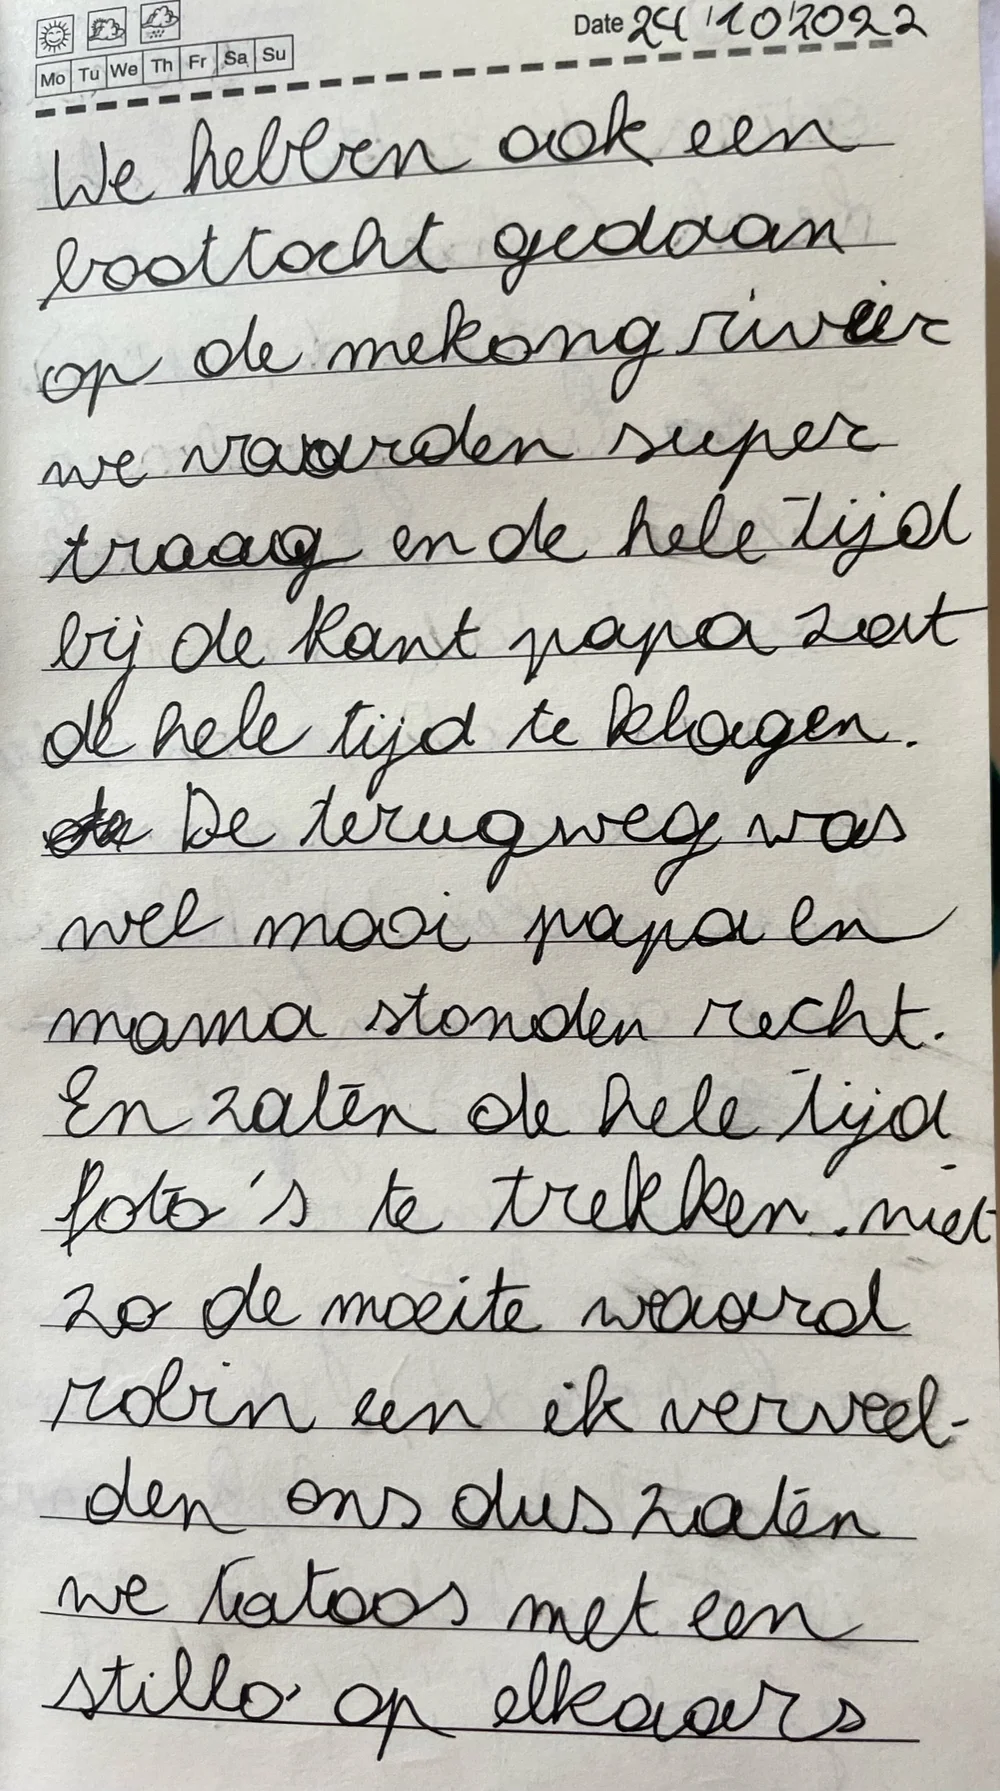 Date 24/10/2022
Mo Tu We Th Fr Sa Su
We hebben ook een
boottocht gedaan
op de mekong rivier
we vaarden super
traag en de hele tijd
bij de kant papa zat
de hele tijd te klagen.
De terugweg was
wel mooi papa en
mama stonden recht.
En zaten de hele tijd
foto's te trekken. niet
zo de moeite waard
robin en ik verveel-
den ons dus zaten
we tatoos met een
stillo op elkaars